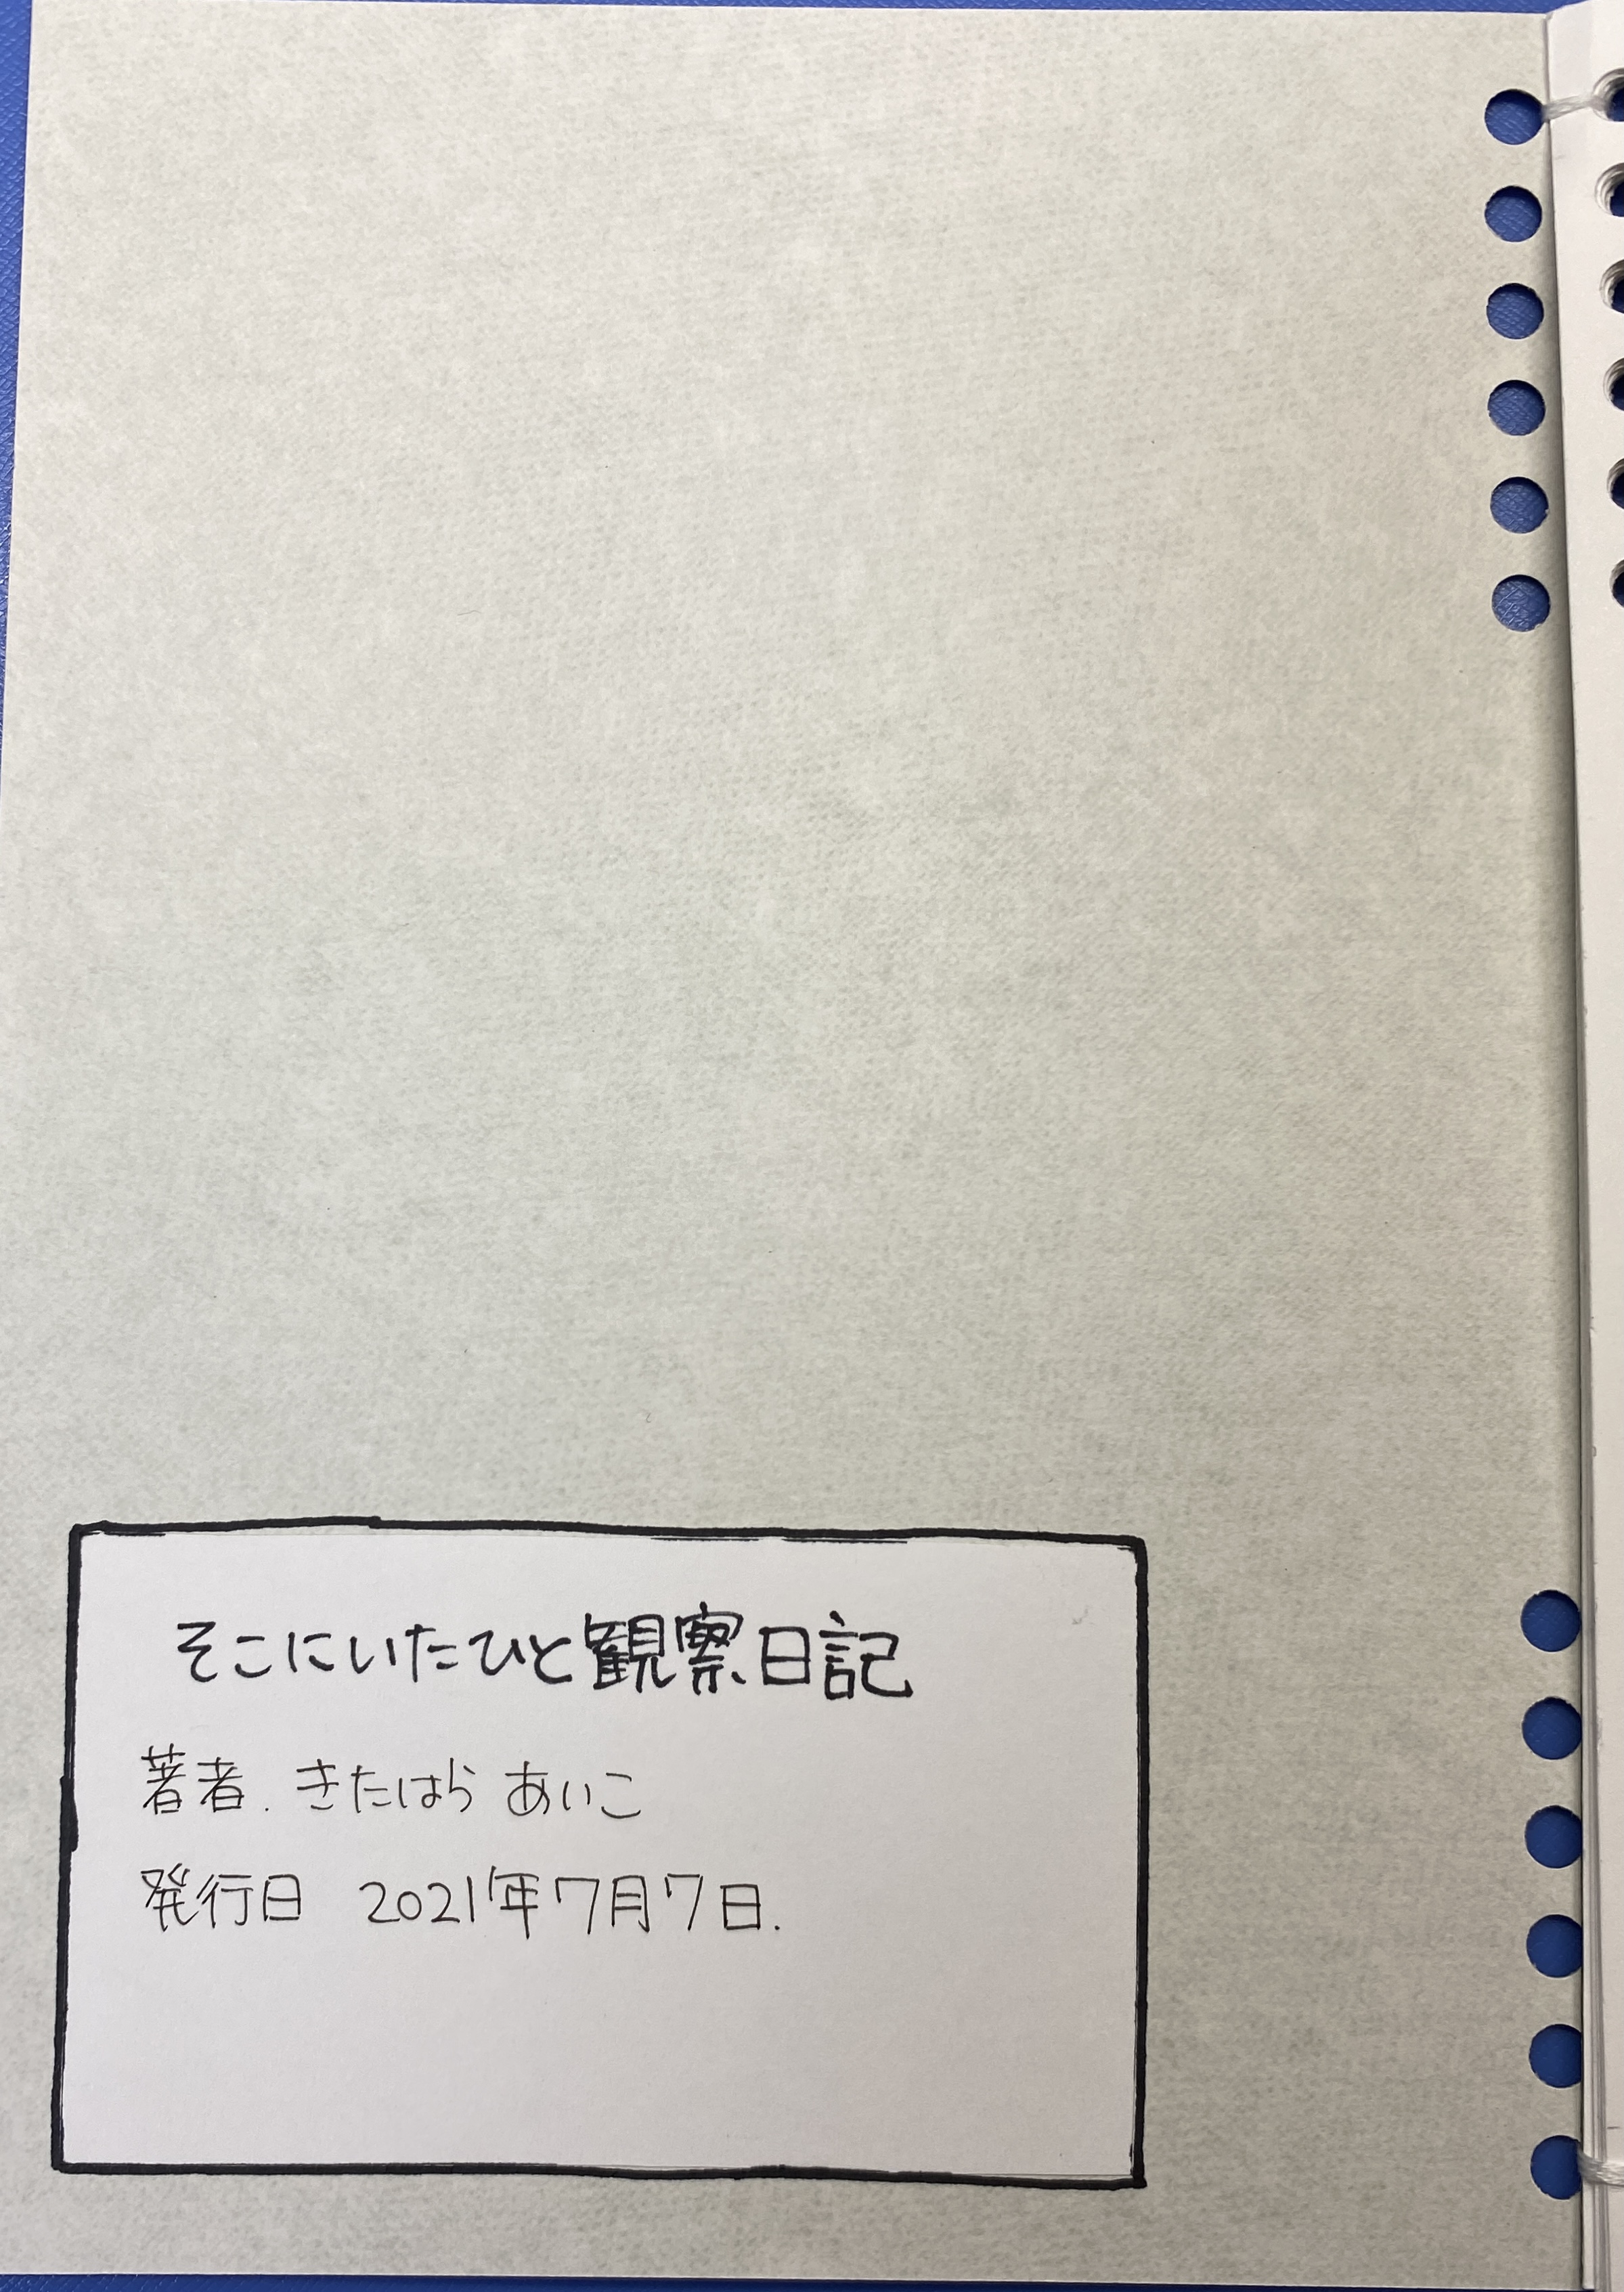 そこにいたひと観察日記
著者. きたはら あいこ
発行日 2021年7月7日.